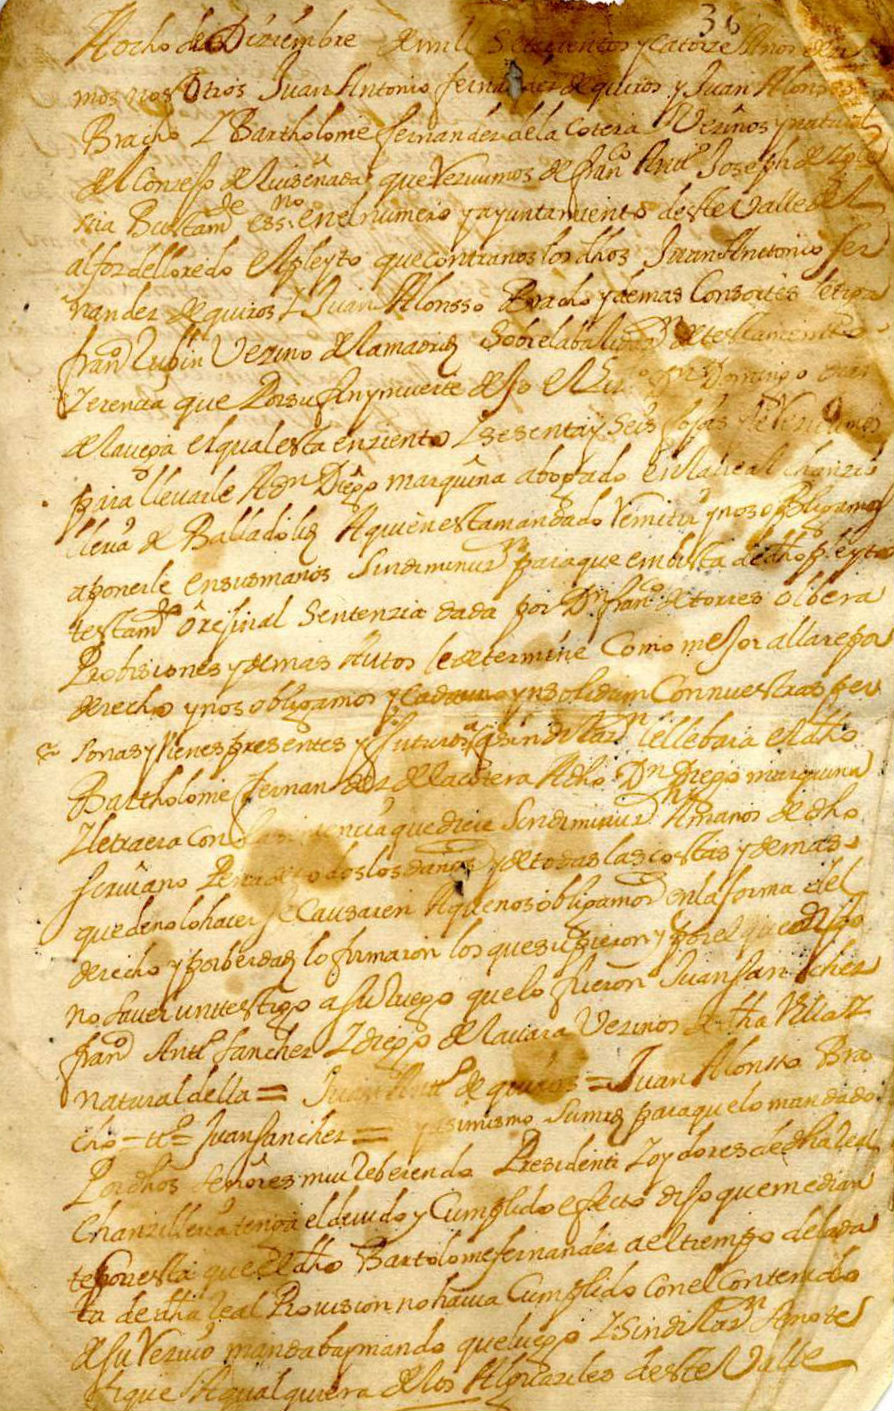 36
Aocho de Diziembre de mill Setezientos y catorze Años dezi
mos nosotros Juan Antonio fernandez de quiros y Juan Alonsso
Bracho Y Bartholome fernandez de la cotera Vezinos y natural
del Conzejo de Ruisenada que Rezivimos de franco Antto Joseph de
Bustamte essno en el numero y ayuntamiento deste Valle de
alfoz de lloredo el pleyto que contra nos los dhos Juan Anttonio fer
nandez de quiros Y Juan Alonsso Bracho y demas Consortes
franco Rubin Vezino de lamadrid Sobre la balidazon de testamento
y erencia que Por su fin y muerte dejo el Dn Domingo
de la vega el qual esta en ziento Y sesenta y seis fojas
para llevarle A Dn Diego marquina abogado en la Real chanzi
lleria de Balladolid A quien esta mandado Remitir y nos obligamos
a ponerle en sus manos Sin diminuzon para que en bista de dho pleyto
testamto orejinal Sentenzia dada por Dn franco de torres olbera
Probisiones y demas Autos le determine Como mejor allare por
derecho y nos obligamos y cada uno ynsolidum Con nuestras per
sonas y vienes presentes y futuros a q sin dilazon le llebara el dho
Bartholome fernandez de la cotera A dho Dn Diego marquina
Y le traera con la sentencia que diere Sin diminuzon A manos de dho
scrivano Pena de todos los daños y de todas las costas y demas
que de no lo hacer se Causaren A que nos obligamos en la forma del
derecho y por berdad lo firmaron los que supieron y por el que dijo
no saver un testigo a su ruego que lo fueron Juan sanchez
franco Antto sanchez Y diego de la viara Vezinos de dha Villa Y
natural della = Juan Antto de quiros = Juan Alonsso Bra
cho - tto = Juan sanchez = y asimismo Sumd para que lo mandado
Por dhos señores muy Reberendo Presidente Y oydores de dha Real
Chanzilleria tenga el devido y Cumplido efecto dijo que median
te por esta que el dho Bartolome fernandez a el tiempo de la da
ta de dha Real Provision no havia Cumplido con el Contenido
de su Rezivo mandaba y mando que luego Y sin dilazon se note
fique A qualquiera de los Alguaziles deste Valle